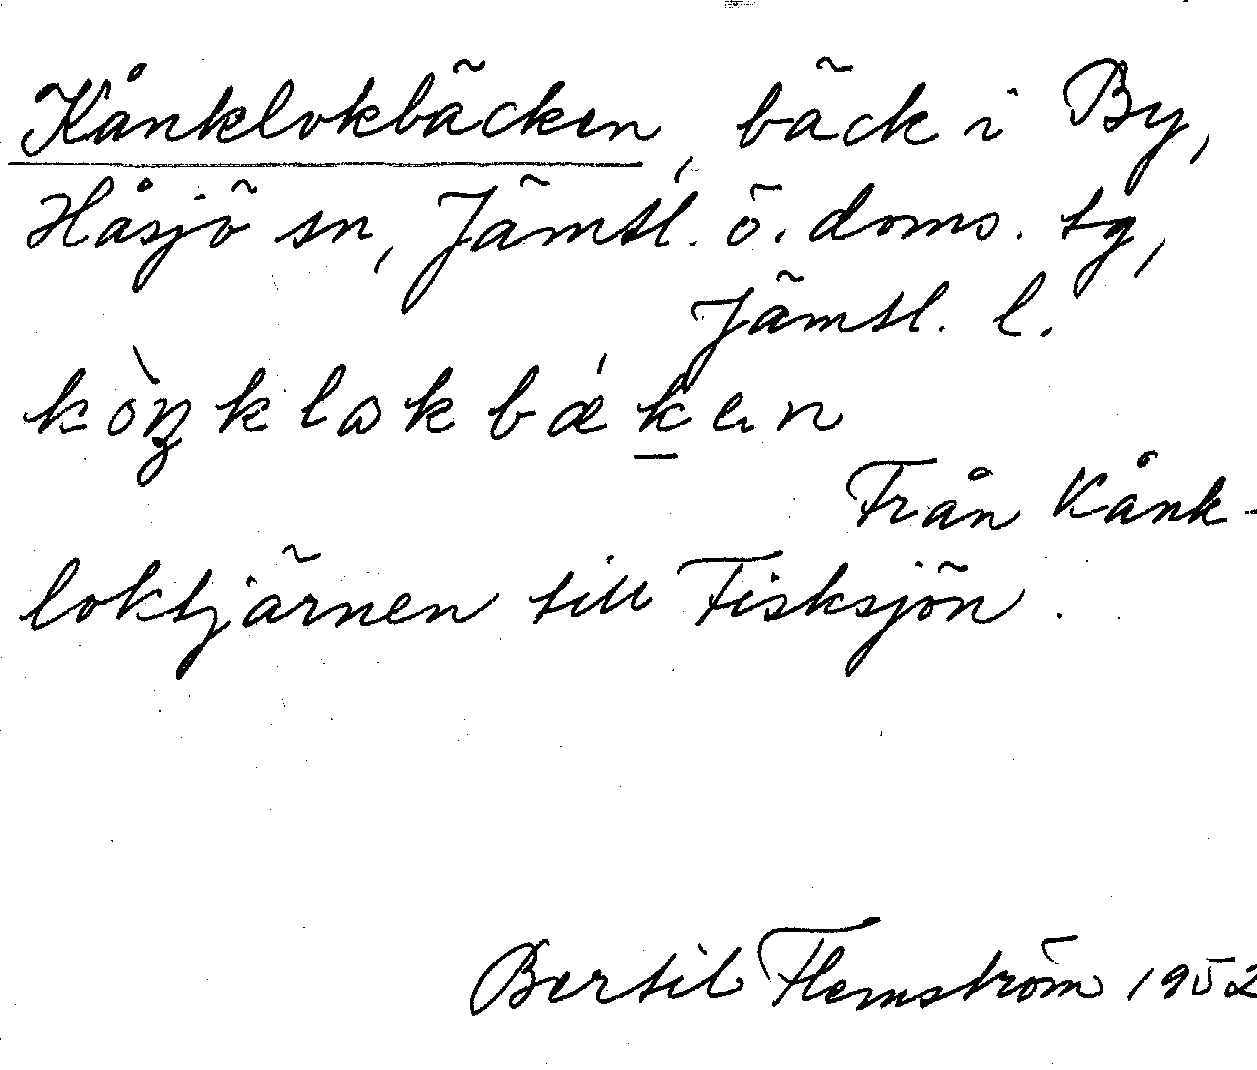 Kånklokbäcken, bäck i By,
Håsjö sn, Jämtl. ö. doms. tg,
Jämtl. l.
kòŋklωkbǽken
Från Kånk-
loktjärnen till Fisksjön.
Bertil Flemström 1952